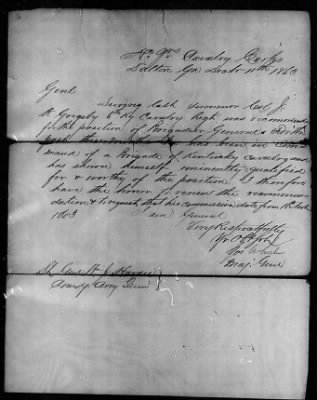 Hd Qrs Cavalry Corps
Dalton Ga Decbr 11th 1863
Genl
During last summer Col. J.
W. Grigsby 6th Ky Cavalry Regt was recommend
for the position of Brigadier General. For the
past he has been in com
mand of a Brigade of Kentucky cavalry and
has shown himself eminently qualified
for & worthy of the position. I therefore
have the honor to renew the recommen
dation & request that his commission date from
1863
am General
Very Respectfully
Yr Obt Svt
Jos Wheeler
Maj. Genl
Lt. Genl W. J. Hardee
Comdg Army Tenn